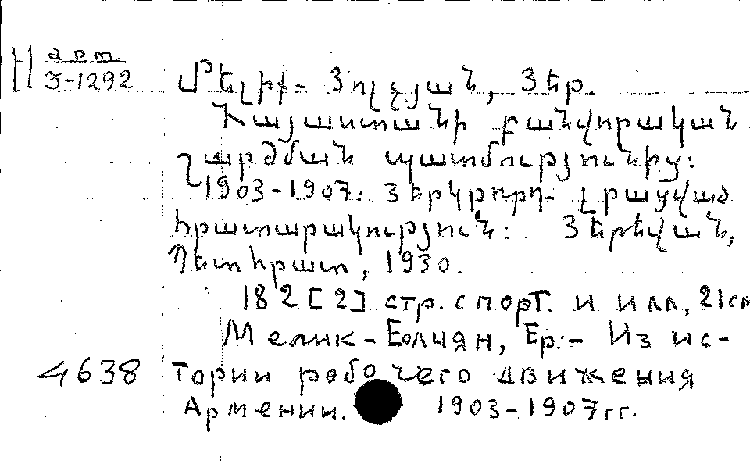 Н авт
J-1292
Մելիք-Յոլչյան, Յեր.
Հայաստանի բանվորական
շարժման պատմությունից:
1903-1907: Յերկրորդ լրացված
հրատարակություն: Յերեվան,
Պետհրատ, 1930.
182 [2] стр. с порт. и илл, 21см
Мелик-Еолчян, Ер.- Из ис-
4638 тории рабочего движения
Армении. 1903-1907гг.